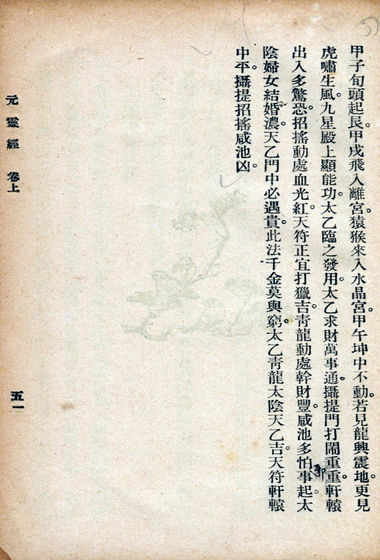 甲子旬頭起艮。甲戌飛入離宮。猿猴來入水晶宮。甲午坤中不動。若見龍興震地。更見
虎嘯生風。九星殿上顯能功。太乙臨之發用。太乙求財萬事通。攝提門打鬧重重。軒轅
出入多驚恐。招搖動處血光紅。天符正宜打獵吉。青龍動處幹財豐。咸池多怕事起。太
陰婦女結婚濃。天乙門中必遇貴。此法千金莫與窮。太乙青龍太陰天乙吉。天符軒轅
中平。攝提招搖咸池凶。
元靈經 卷上
五一